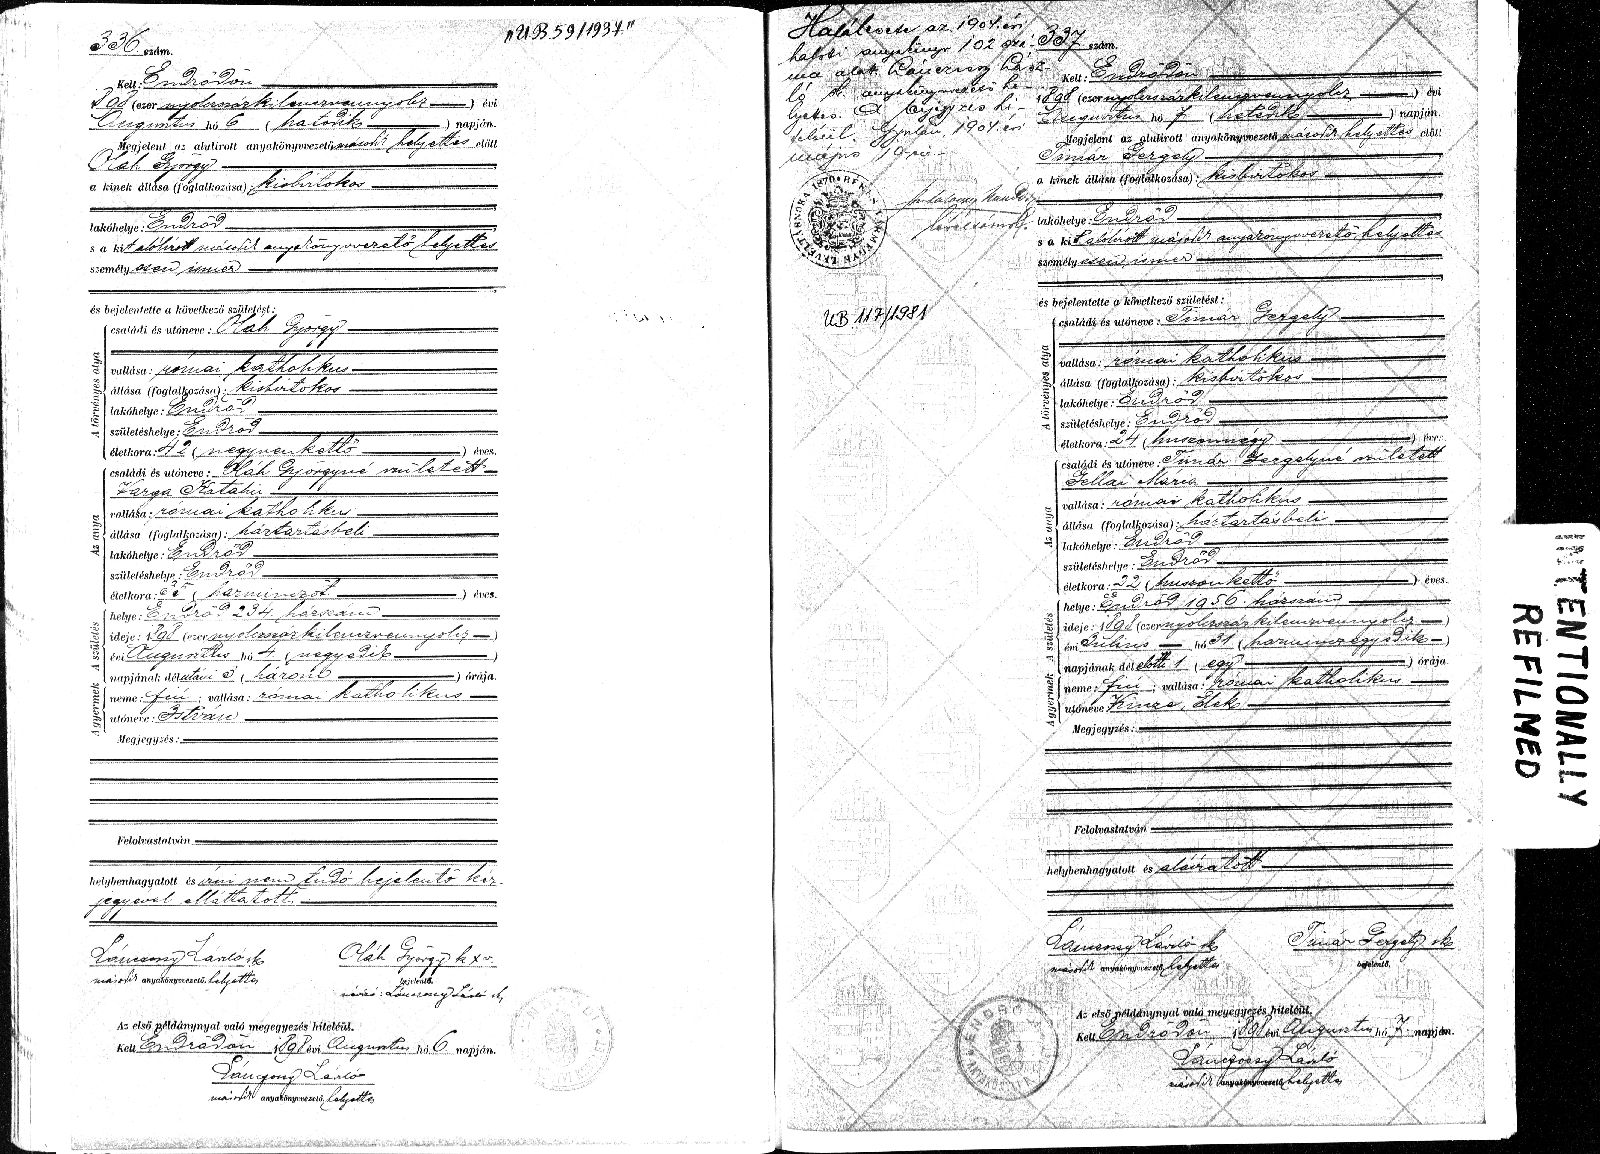 336 szám.
"UB 59/1937"
Kelt: Endrődön
1898 (ezer nyolcszázkilencvennyolcz) évi
Augusztus hó 6 (hatodik) napján.
Megjelent az alulirott anyakönyvvezető második helyettes előtt
Oláh György
a kinek állása (foglalkozása): kisbirtokos
lakóhelye: Endrőd
s a kit alólirott második anyakönyvvezető helyettes
személyesen ismer
és bejelentette a következő születést:
A törvényes atya
családi és utóneve: Oláh György
vallása: római katholikus
állása (foglalkozása): kisbirtokos
lakóhelye: Endrőd
születéshelye: Endrőd
életkora: 42 (negyvenkettő) éves.
Az anya
családi és utóneve: Oláh Györgyné született
Varga Katalin
vallása: római katholikus
állása (foglalkozása): háztartásbeli
lakóhelye: Endrőd
születéshelye: Endrőd
életkora: 35 (harminczöt) éves.
A születés
helye: Endrőd 234 házszám
ideje: 1898 (ezer nyolczszázkilenczvennyolcz)
évi Augusztus hó 4 (negyedik)
napjának délutáni 3 (három) órája.
A gyermek
neme: fiú; vallása: római katholikus
utóneve: István
Megjegyzés:
Felolvastatván
helybenhagyatott és írni nem tudó bejelentő kéz-
jegyével elláttatott.
Lánczossy László sk
második anyakönyvvezető helyettes
Oláh György k x v.
bejelentő.
névíró: Lánczossy László sk,
Az első példánynyal való megegyezés hiteléül.
Kelt Endrődön 1898 évi Augusztus hó 6 napján.
Lánczossy László
második anyakönyvvezető helyettes
Halálesete az 1904. évi
halotti anyakönyv 102 szá-
ma alatt Lánczossy Lász-
ló h. anyakönyvvezető he-
lyettes. A bejegyzés hi-
teléül. Gyulán, 1904 évi
május 19-én
főlevéltárnok.
BÉKÉS VÁRMEGYE LEVÉLTÁRNOKA 1870
UB 117/1981
337 szám.
Kelt: Endrődön
1898 (ezer nyolcszázkilenczvennyolcz) évi
Augusztus hó 7 (hetedik) napján.
Megjelent az alulirott anyakönyvvezető második helyettes előtt
Timár Gergely
a kinek állása (foglalkozása): kisbirtokos
lakóhelye: Endrőd
s a kit alólirott második anyakönyvvezető helyettes
személyesen ismer
és bejelentette a következő születést:
A törvényes atya
családi és utóneve: Timár Gergely
vallása: római katholikus
állása (foglalkozása): kisbirtokos
lakóhelye: Endrőd
születéshelye: Endrőd
életkora: 24 (huszonnégy) éves.
Az anya
családi és utóneve: Timár Gergelyné született
Gellai Mária
vallása: római katholikus
állása (foglalkozása): háztartásbeli
lakóhelye: Endrőd
születéshelye: Endrőd
életkora: 22 (huszonkettő) éves.
A születés
helye: Endrőd 1956. házszám
ideje: 1898 (ezer nyolczszázkilenczvennyolcz)
évi Július hó 31 (harminczegyedik)
napjának délelőtti 1 (egy) órája.
A gyermek
neme: fiú; vallása: római katholikus
utóneve Vincze, Elek
Megjegyzés:
Felolvastatván
helybenhagyatott és aláíratott
Lánczossy László sk
második anyakönyvvezető helyettes
Timár Gergely sk
bejelentő.
Az első példánynyal való megegyezés hiteléül.
Kelt Endrődön 1898 évi Augusztus hó 7 napján.
Lánczossy László
második anyakönyvvezető helyettes
INTENTIONALLY
REFILMED